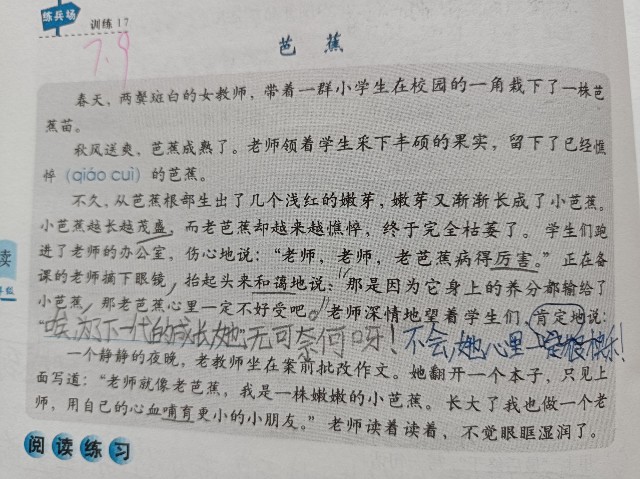 练兵场 训练 17
7.9
芭 蕉
春天，两鬓斑白的女教师，带着一群小学生在校园的一角栽下了一株芭
蕉苗。
秋风送爽，芭蕉成熟了。老师领着学生采下丰硕的果实，留下了已经憔
悴（qiáo cuì）的芭蕉。
不久，从芭蕉根部生出了几个浅红的嫩芽，嫩芽又渐渐长成了小芭蕉。
小芭蕉越长越茂盛，而老芭蕉却越来越憔悴，终于完全枯萎了。学生们跑
进了老师的办公室，伤心地说：“老师，老师，老芭蕉病得厉害。”正在备
课的老师摘下眼镜，抬起头来和蔼地说：“那是因为它身上的养分都输给了
小芭蕉，那老芭蕉心里一定不好受吧。”老师深情地望着学生们 肯定地说：
“唉，为了下一代的成长，她无可奈何呀！不会，她心里一定很快乐！
一个静静的夜晚，老教师坐在案前批改作文。她翻开一个本子，只见上
面写道：“老师就像老芭蕉，我是一株嫩嫩的小芭蕉。长大了我也做一个老
师，用自己的心血哺育更小的小朋友。”老师读着读着，不觉眼眶湿润了。
阅读练习
读